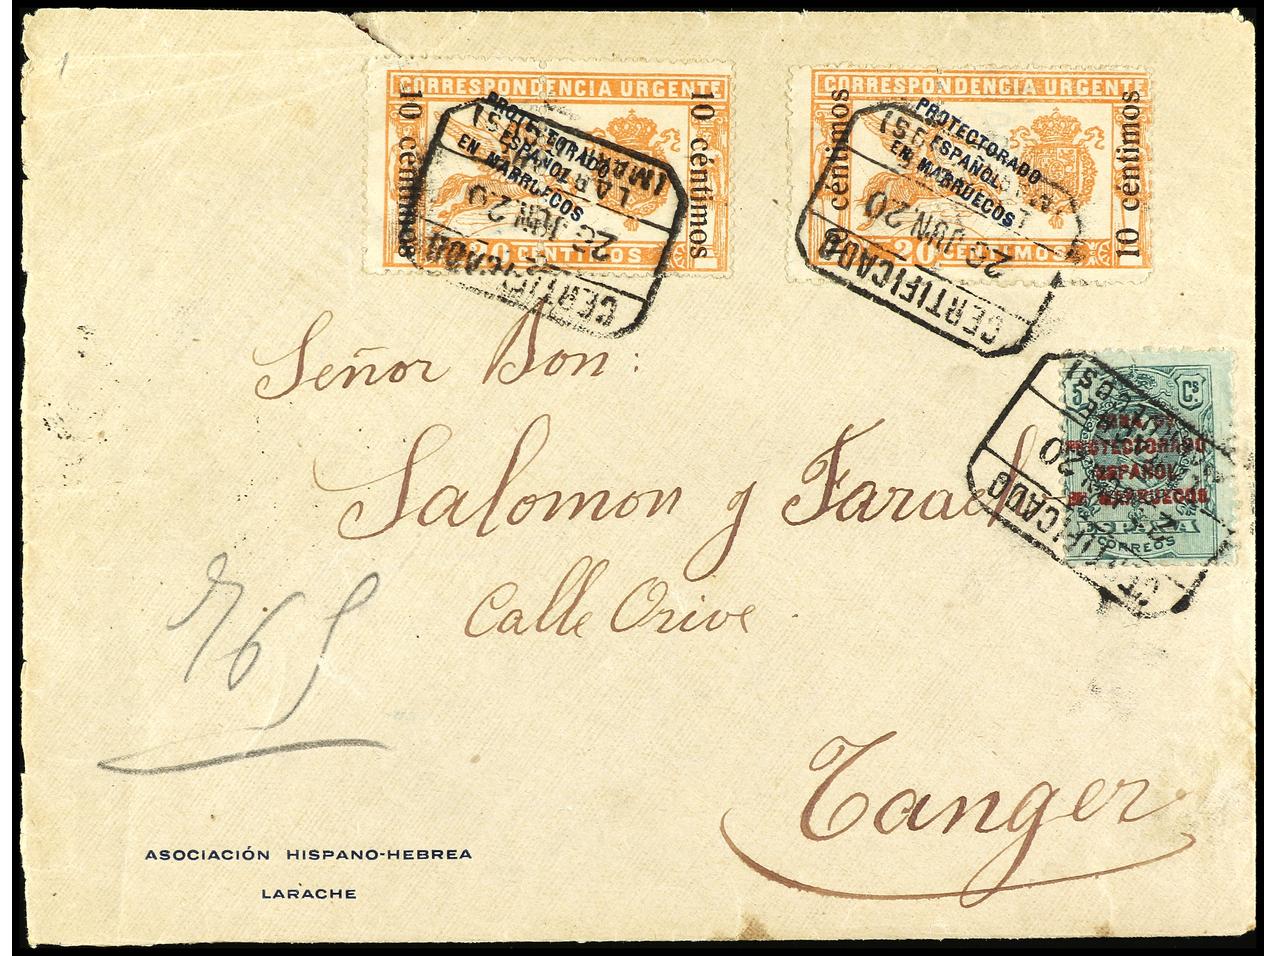 CORRESPONDENCIA URGENTE
10 céntimos
10 céntimos
PROTECTORADO
ESPAÑOL
EN MARRUECOS
20 CENTIMOS
CERTIFICADO
26 JUN. 20
LARACHE
(MARRUECOS)
CORRESPONDENCIA URGENTE
céntimos
10 céntimos
PROTECTORADO
ESPAÑOL
EN MARRUECOS
20 CENTIMOS
CERTIFICADO
26 JUN 20
5 Cs
ZONA DE
PROTECTORADO
ESPAÑOL
EN MARRUECOS
ESPAÑA
CORREOS
CERTIFICADO
20
Señor Don:
Salomon y Farach
Calle Orive
Tanger
765
ASOCIACIÓN HISPANO-HEBREA
LARACHE